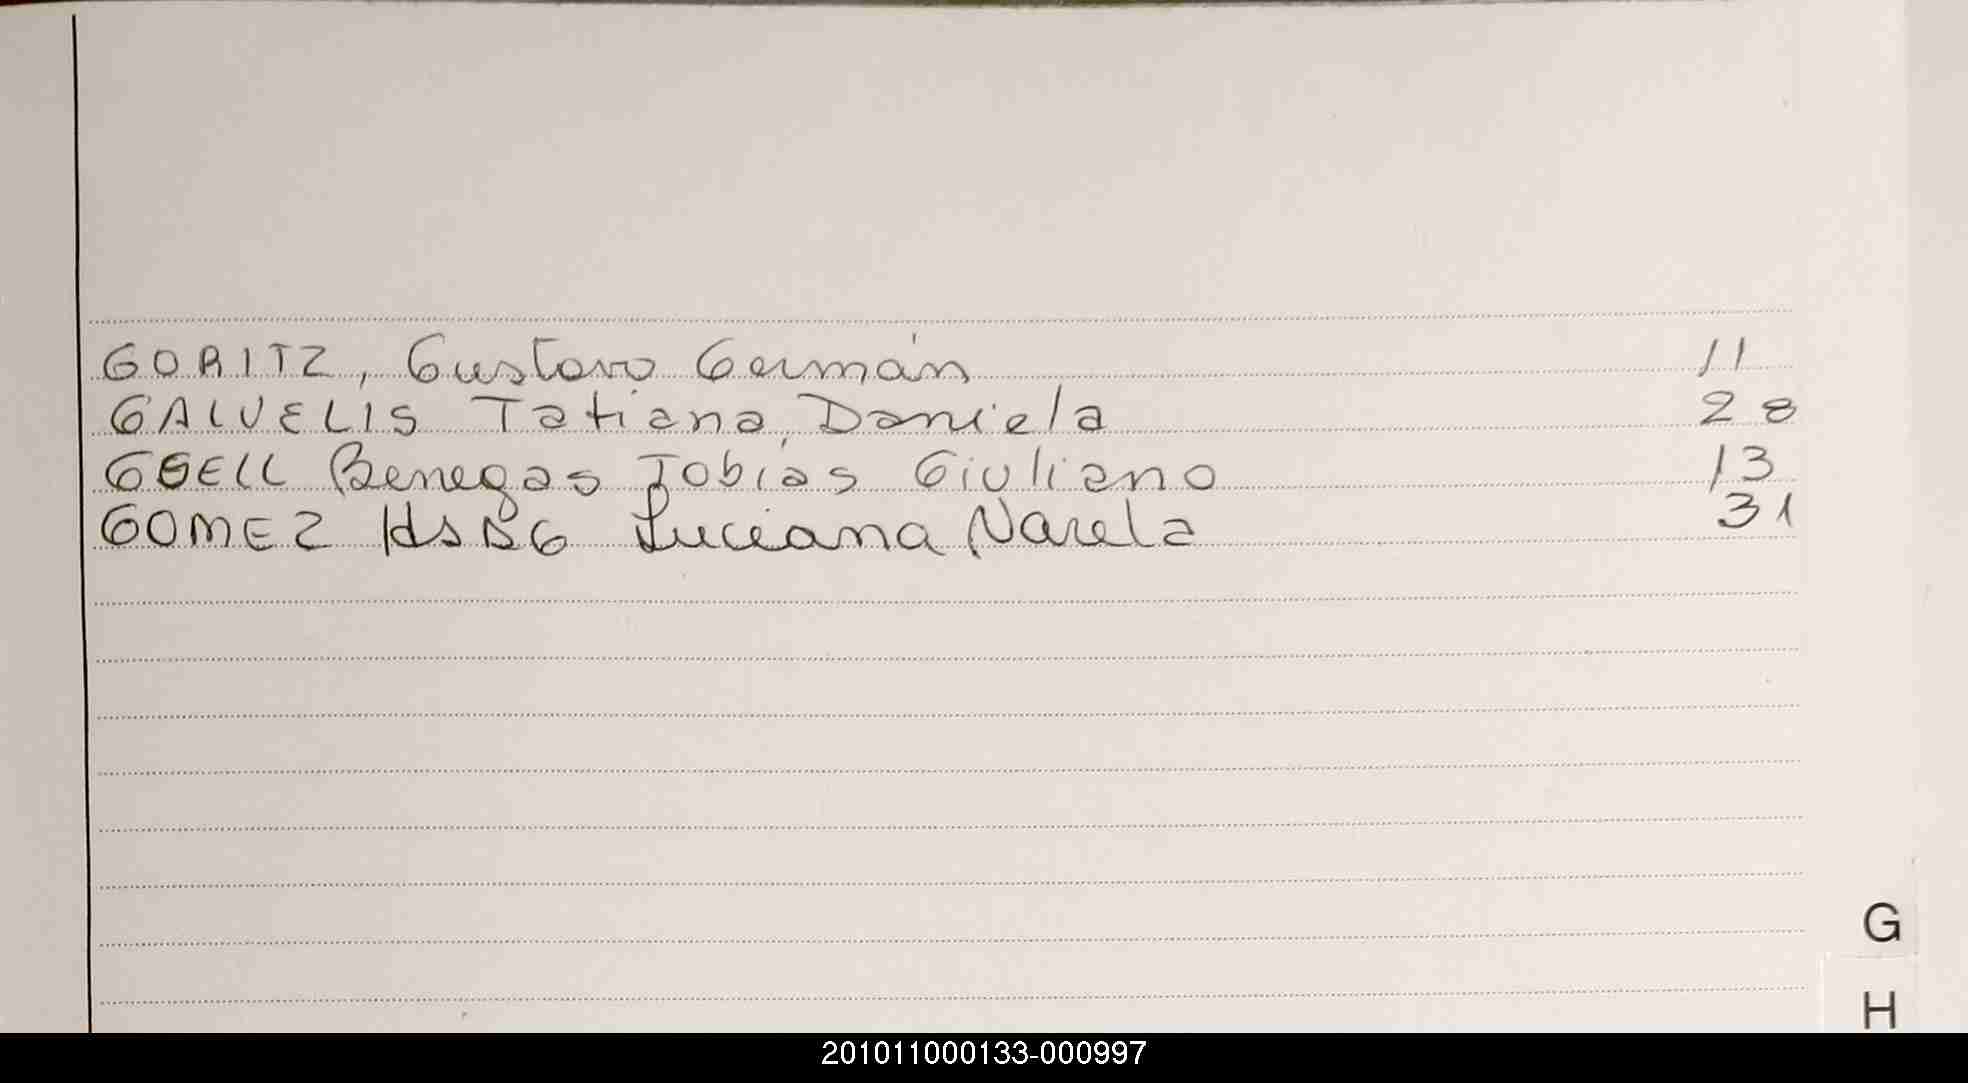 GORITZ, Gustavo Germán 11
GALVELIS Tatiana, Daniela 28
GSELL Benegas Tobías Giuliano 13
GOMEZ Luciana Narela 31
G
H
201011000133-000997